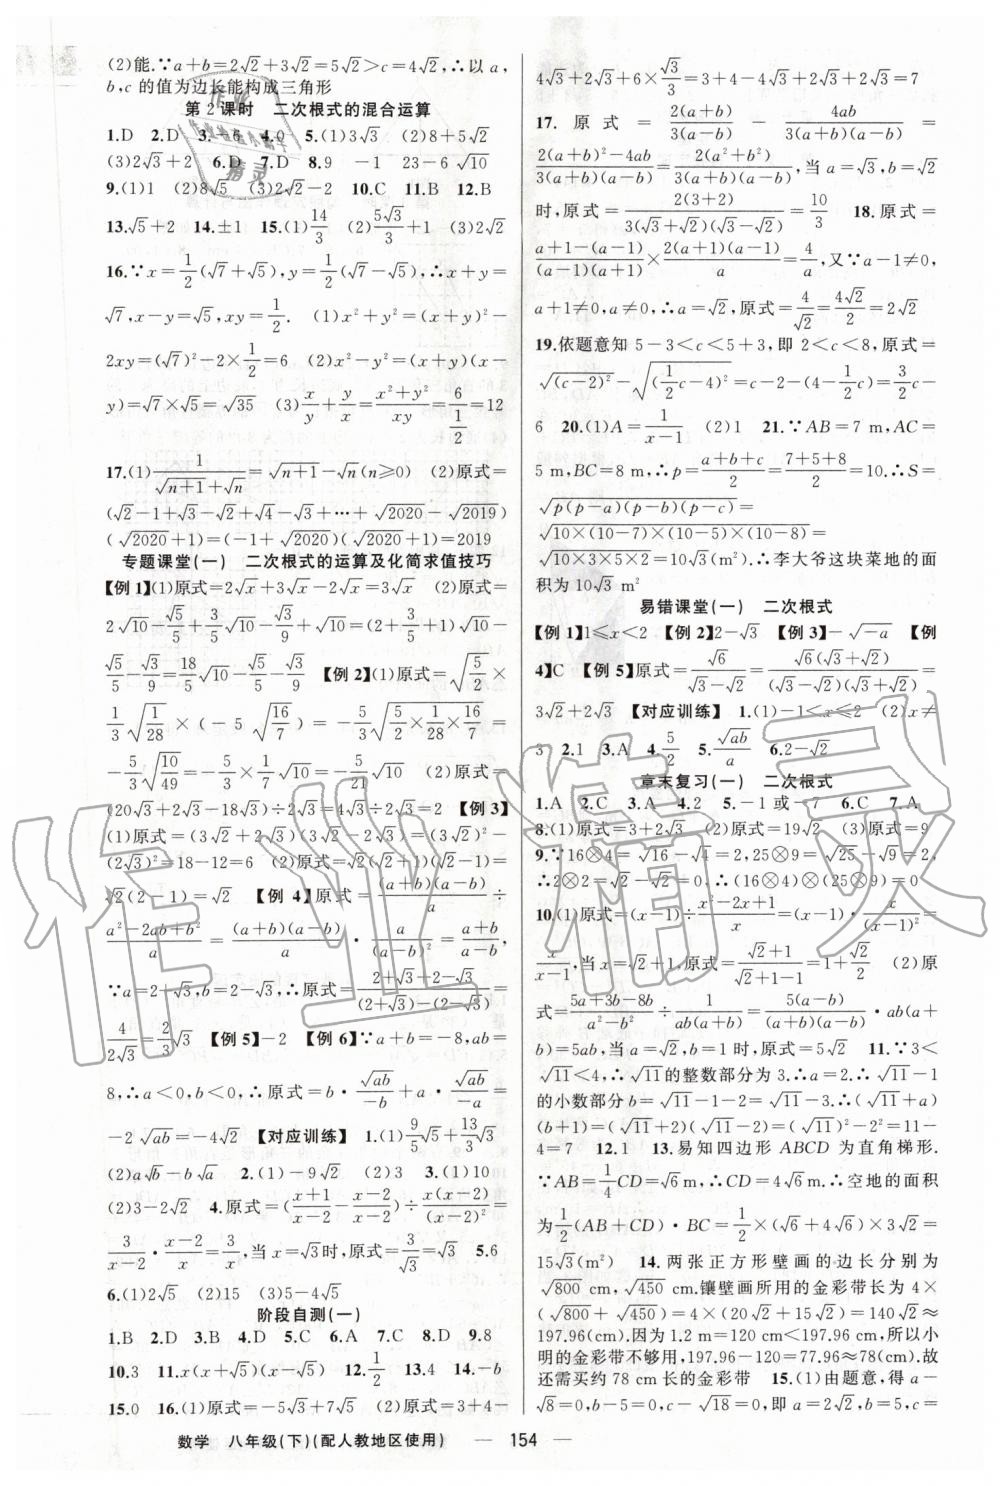 (2)能.∵a+b=2√2+3√2=5√2>c=4√2,∴以a,
b,c的值为边长能构成三角形
第2课时 二次根式的混合运算
1.D 2.D 3.-6 4.0 5.(1)3√3 (2)8+5√2
(3)2√3+2 6.D 7.D 8.9 -1 23-6√10
9.(1)1 (2)8√5 (3)2√2-2 10.C 11.B 12.B
13.√5+2 14.±1 15.(1)14/3 (2)5√3/3+1 (3)2√2
16.∵x=1/2(√7+√5),y=1/2(√7-√5),∴x+y=
√7,x-y=√5,xy=1/2. (1)x²+y²=(x+y)²-
2xy=(√7)²-2×1/2=6 (2)x²-y²=(x+y)(x-
y)=√7×√5=√35 (3)x/y+y/x=(x²+y²)/xy=6/(1/2)=12
17.(1)1/(√(n+1)+√n)=√(n+1)-√n(n≥0) (2)原式=
(√2-1+√3-√2+√4-√3+…+√2020-√2019)
(√2020+1)=(-1+√2020)(√2020+1)=2019
专题课堂(一) 二次根式的运算及化简求值技巧
【例1】(1)原式=2√x+3√x-2√x=3√x (2)原式=
2√10-√5/5-√5/9+3/5√10+√10=(2+3/5+1)√10-
√5/5-√5/9=18/5√10-√5/5-√5/9 【例2】(1)原式=√(5/2)×
1/3√(1/28)×(-5√(16/7))=-5/3√(5/2×1/28×16/7)=
-5/3√(10/49)=-5/3×1/7√10=-5/21√10 (2)原式=
(20√3+2√3-18√3)÷2√3=4√3÷2√3=2 【例3】
(1)原式=(3√2+2√3)(3√2-2√3)=(3√2)²-
(2√3)²=18-12=6 (2)原式=√2(√2+1)(√2-1)=
√2(2-1)=√2 【例4】原式=(a+b)(a-b)/a÷
(a²-2ab+b²)/a=(a+b)(a-b)/a·a/(a-b)²=(a+b)/(a-b),
∵a=2+√3,b=2-√3,∴原式=(2+√3+2-√3)/((2+√3)-(2-√3))=
4/(2√3)=2/3√3 【例5】-2 【例6】∵a+b=-8,ab=
8,∴a<0,b<0,∴原式=b·√ab/(-b)+a·√ab/(-a)=
-2√ab=-4√2 【对应训练】1.(1)9/5√5+13/3√3
(2)a√b-b√a 2.(1)-9√2 (2)3 3.(1)10
(2)3-2√2 4.原式=((x+1)/(x-2)-(x-2)/(x-2))÷x(x-2)/(x-2)²=
3/(x-2)·(x-2)/x=3/x,当x=√3时,原式=√3 5.6
6.(1)2√5 (2)15 (3)5-4√3
阶段自测(一)
1.B 2.D 3.B 4.D 5.C 6.A 7.C 8.D 9.8
10.3 11.x(x+√5)(x-√5) 12.1/2 13.4 14.-b
15.0 16.(1)原式=-5√3+7√5 (2)原式=3+4-
4√3+2√3+6×√3/3=3+4-4√3+2√3+2√3=7
17.原式=2(a+b)/3(a-b)-4ab/3(a+b)(a-b)=
(2(a+b)²-4ab)/3(a+b)(a-b)=2(a²+b²)/3(a+b)(a-b),当a=√3,b=√2
时,原式=2(3+2)/3(√3+√2)(√3-√2)=10/3 18.原式=
(a+1-(a-1))/(a-1)(a+1)×2(a+1)(a-1)/a=4/a,又∵a-1≠0,
a+1≠0,a≠0,∴a=√2,原式=4/√2=4√2/2=2√2
19.依题意知5-3<c<5+3,即2<c<8,原式=
√(c-2)²-√(1/2c-4)²=c-2-(4-1/2c)=3/2c-
6 20.(1)A=1/(x-1) (2)1 21.∵AB=7 m,AC=
5 m,BC=8 m,∴p=(a+b+c)/2=(7+5+8)/2=10.∴S=
√(p(p-a)(p-b)(p-c))=
√(10×(10-7)×(10-5)×(10-8))=
√(10×3×5×2)=10√3(m²).∴李大爷这块菜地的面
积为10√3 m²
易错课堂(一) 二次根式
【例1】1≤x<2 【例2】2-√3 【例3】-√-a 【例
4】C 【例5】原式=√6/(√3-√2)=√6(√3+√2)/(√3-√2)(√3+√2)=
3√2+2√3 【对应训练】1.(1)-1<x≤2 (2)x≠
3 2.1 3.A 4.5/2 5.√ab/a 6.2-√2
章末复习(一) 二次根式
1.A 2.C 3.A 4.2 5.-1或-7 6.C 7.A
8.(1)原式=3+2√3 (2)原式=19√2 (3)原式=9
9.∵16⊗4=√16-√4=2,25⊗9=√25-√9=2,
∴2⊗2=√2-√2=0,∴(16⊗4)⊗(25⊗9)=0
10.(1)原式=(x-1)÷(x²-2x+1)/x=(x-1)·x/(x-1)²=
x/(x-1),当x=√2+1,原式=(√2+1)/(√2+1-1)=1+√2/2 (2)原
式=(5a+3b-8b)/(a²-b²)÷1/ab(a+b)=5(a-b)/(a+b)(a-b)·ab(a+
b)=5ab,当a=√2,b=1时,原式=5√2 11.∵3<
√11<4,∴√11的整数部分为3.∴a=2.∴√11-1
的小数部分b=√11-1-2=√11-3.∴(√11+a)
(b+1)=(√11+2)(√11-2)=(√11)²-2²=11-
4=7 12.1 13.易知四边形ABCD为直角梯形.
∵AB=1/4CD=√6 m,∴CD=4√6 m.∴空地的面积
为1/2(AB+CD)·BC=1/2×(√6+4√6)×3√2=
15√3(m²) 14.两张正方形壁画的边长分别为
√800 cm,√450 cm.镶壁画所用的金彩带长为4×
(√800+√450)=4×(20√2+15√2)=140√2≈
197.96(cm).因为1.2 m=120 cm<197.96 cm,所以小
明的金彩带不够用,197.96-120=77.96≈78(cm).故
还需买约78 cm长的金彩带 15.(1)由题意,得a-
8=0,√2b-5=0,c-3√2=0,∴a=8,b=5√2/2,c=
数学 八年级(下)(配人教地区使用) — 154 —
作业精灵